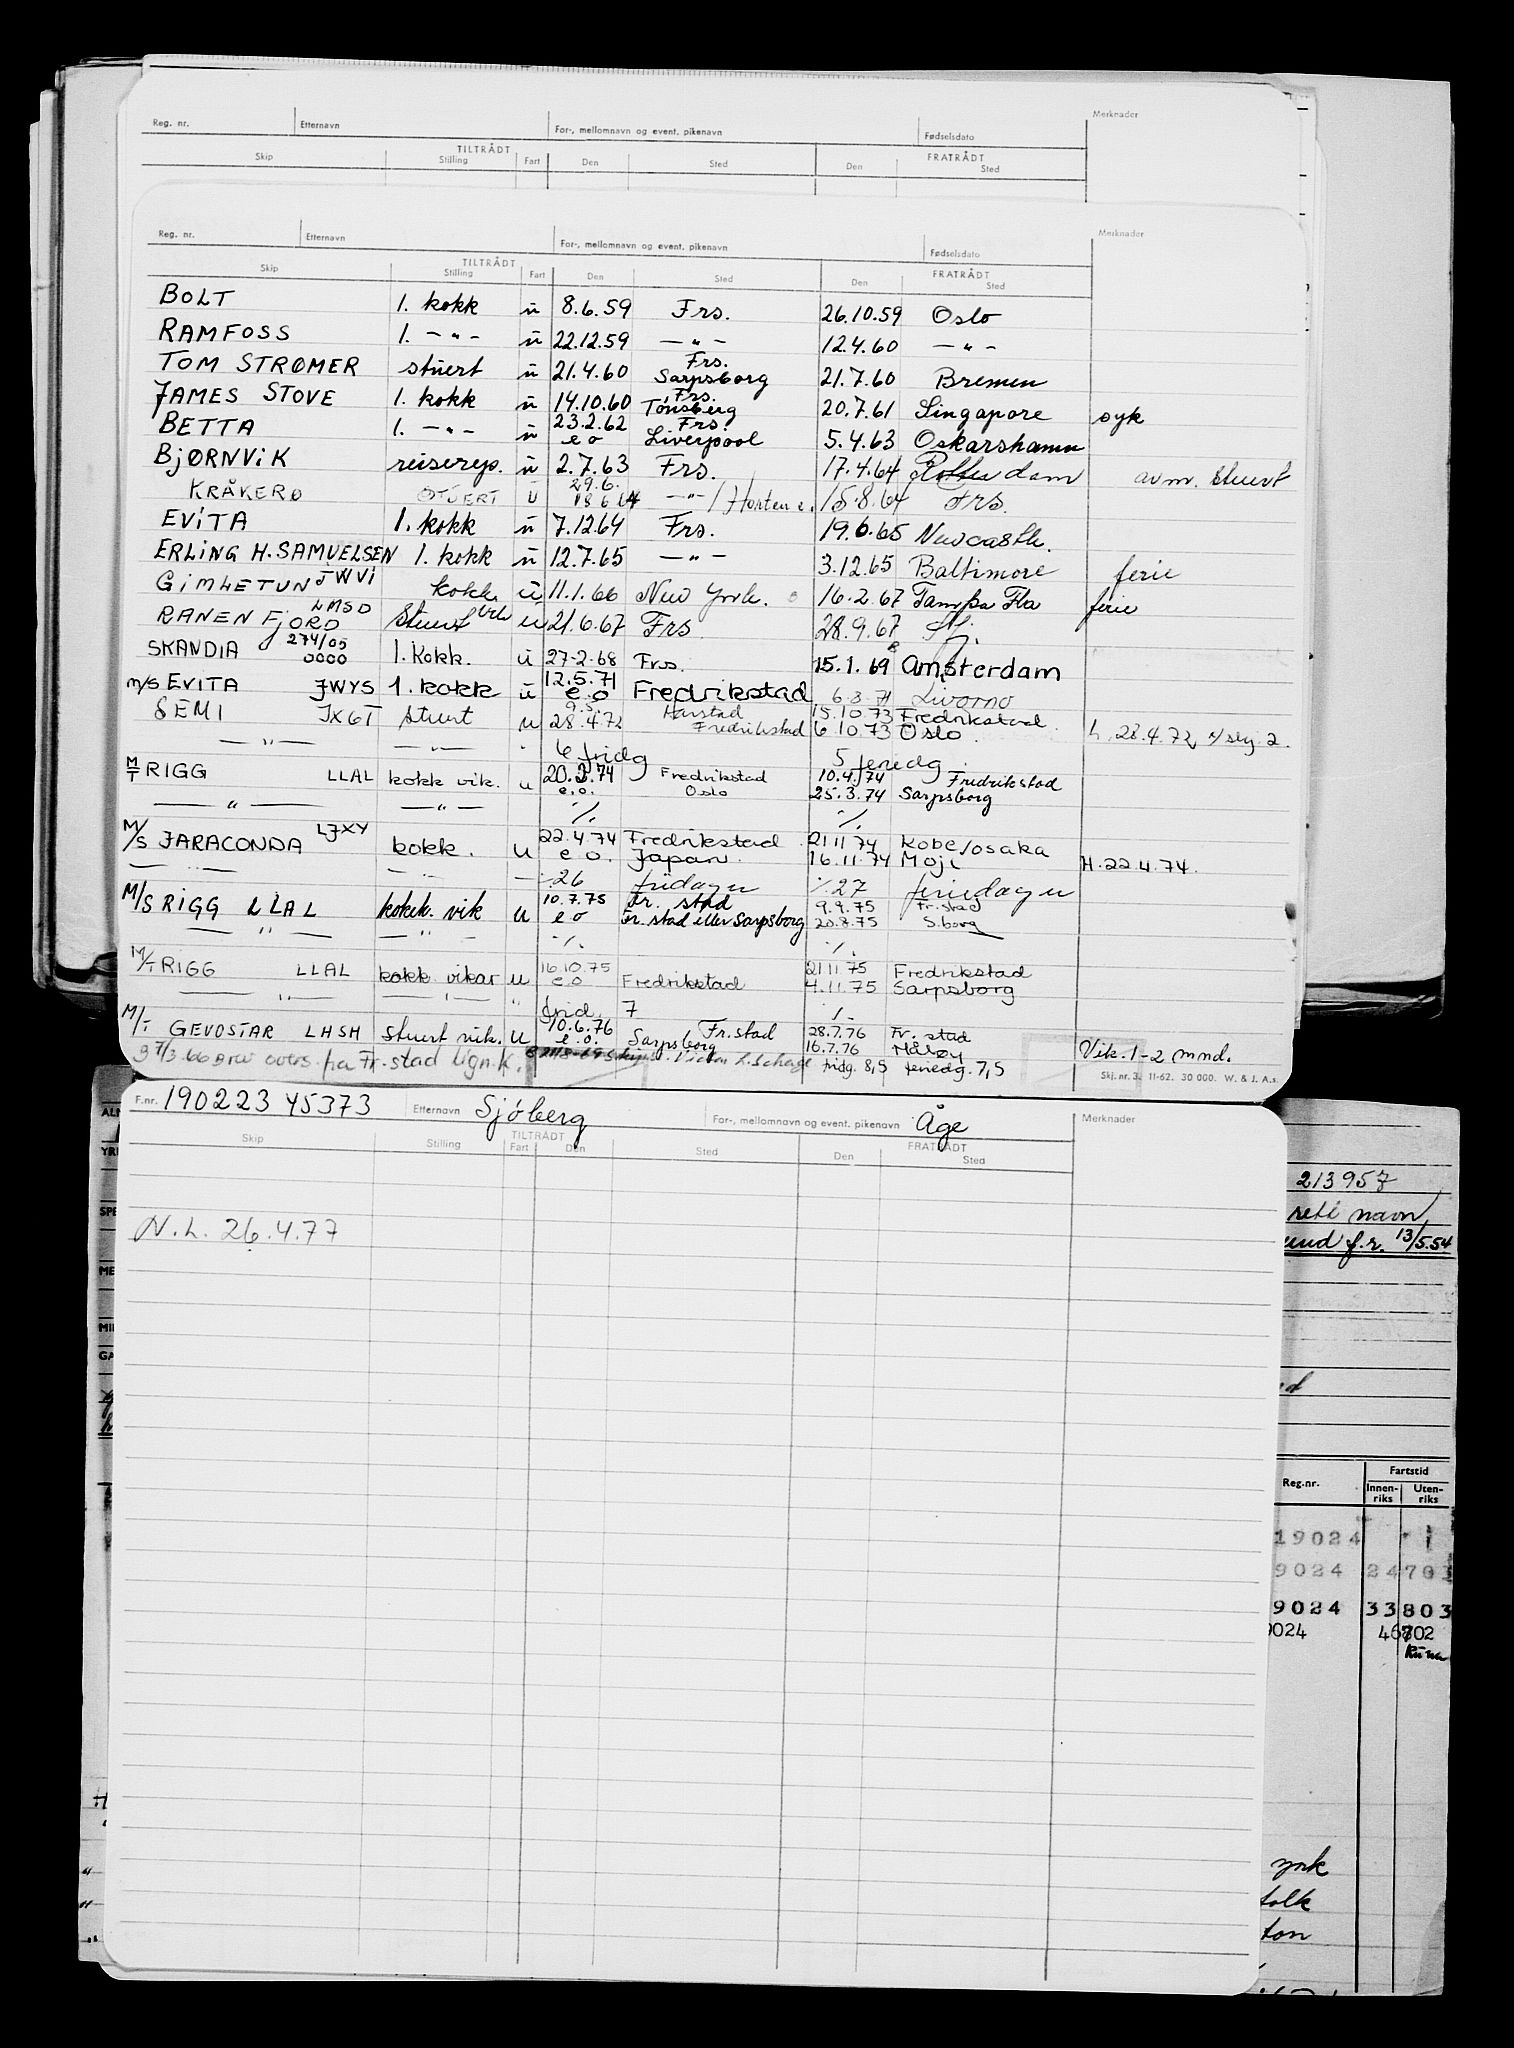 Reg. nr. Etternavn For-, mellomnavn og event. pikenavn Fødselsdato Merknader
TILTRÅDT FRATRÅDT
Skip Stilling Fart Den Sted Den Sted
Reg. nr. Etternavn For-, mellomnavn og event. pikenavn Fødselsdato Merknader
TILTRÅDT FRATRÅDT
Skip Stilling Fart Den Sted Den Sted
BOLT 1. kokk u 8.6.59 Frs. 26.10.59 Oslo
RAMFOSS 1. — " — u 22.12.59 — " — 12.4.60 — " —
TOM STRØMER stuert u 21.4.60 Frs. Sarpsborg 21.7.60 Bremen
JAMES STOVE 1. kokk u 14.10.60 Frs. Tønsberg 20.7.61 Singapore syk
BETTA 1. — " — u 23.2.62 e o Frs. Liverpool 5.4.63 Oskarshamn
BJØRNVIK reiserep. u 2.7.63 Frs. 17.4.64 Rotterdam avm. stuert
KRÅKERØ STUERT u 29.6. 18 6 64 — " — / Horten e. 15.8.64 Frs.
EVITA 1. kokk u 7.12.64 Frs. 19.6.65 Newcastle.
ERLING H. SAMUELSEN 1. kokk u 12.7.65 — " — 3.12.65 Baltimore ferie
GIMLETUN JWVI kokk u 11.1.66 New York. 16.2.67 Tampa Fla ferie
RANENFJORD LMSD Stuert vik u 21.6.67 Frs 28.9.67
SKANDIA 274/05 0000 1. Kokk. u 27-2.68 Frs. 15.1.69 Amsterdam
m/s EVITA JWYS 1. kokk u 12.5.71 e.o Fredrikstad 6.8.71 Livorno
SEMI JXGT Stuert u 9.5. 28.4.72 Harstad Fredrikstad 15.10.73 Fredrikstad 6.10.73 Oslo
— " — — " — 6 fridg 5 feriedg
M/T RIGG LLAL kokk vik. u 20.3.74 e.o. Fredrikstad Oslo 10.4.74 Fredrikstad 25.3.74 Sarpsborg
— " — — " — ./. ./.
M/S JARACONDA LJXY kokk. u 22.4.74 Fredrikstad e o. Japan. 21.11.74 Kobe/osaka 16.11.74 Moji H.22.4.74.
— " — — " — ./. 26 fridager ./. 27 feriedager
M/S RIGG LLAL kokk. vik u 10.7.75 Fr. stad e o Fr. stad eller Sarpsborg 9.9.75 Fr.stad 20.8.75 S.borg
— " — — " — ./. ./.
M/T RIGG LLAL kokk. vikar u 16.10.75 e o Fredrikstad 21.11.75 Fredrikstad 4.11.75 Sarpsborg
— " — — " — " frid. 7 ./.
M/T GEVOSTAR LHSH Stuert vik. u 10.6.76 e.o. Fr.stad Sarpsborg 28.7.76 Fr. stad 16.7.76 Måløy Vik. 1-2 mnd.
fridg. 8,5 feriedg. 7,5
Skj. nr. 3. 11-62. 30 000. W. & J. A.s.
F.nr. 190223 45373 Etternavn Sjöberg For-, mellomnavn og event. pikenavn Åge Merknader
TILTRÅDT FRATRÅDT
Skip Stilling Fart Den Sted Den Sted
N.L. 26.4.77
213957
rett navn
f.r. 13/5.54
Reg.nr. Fartstid
Innen-riks Uten-riks
19024
9024 24703
9024 33803
9024